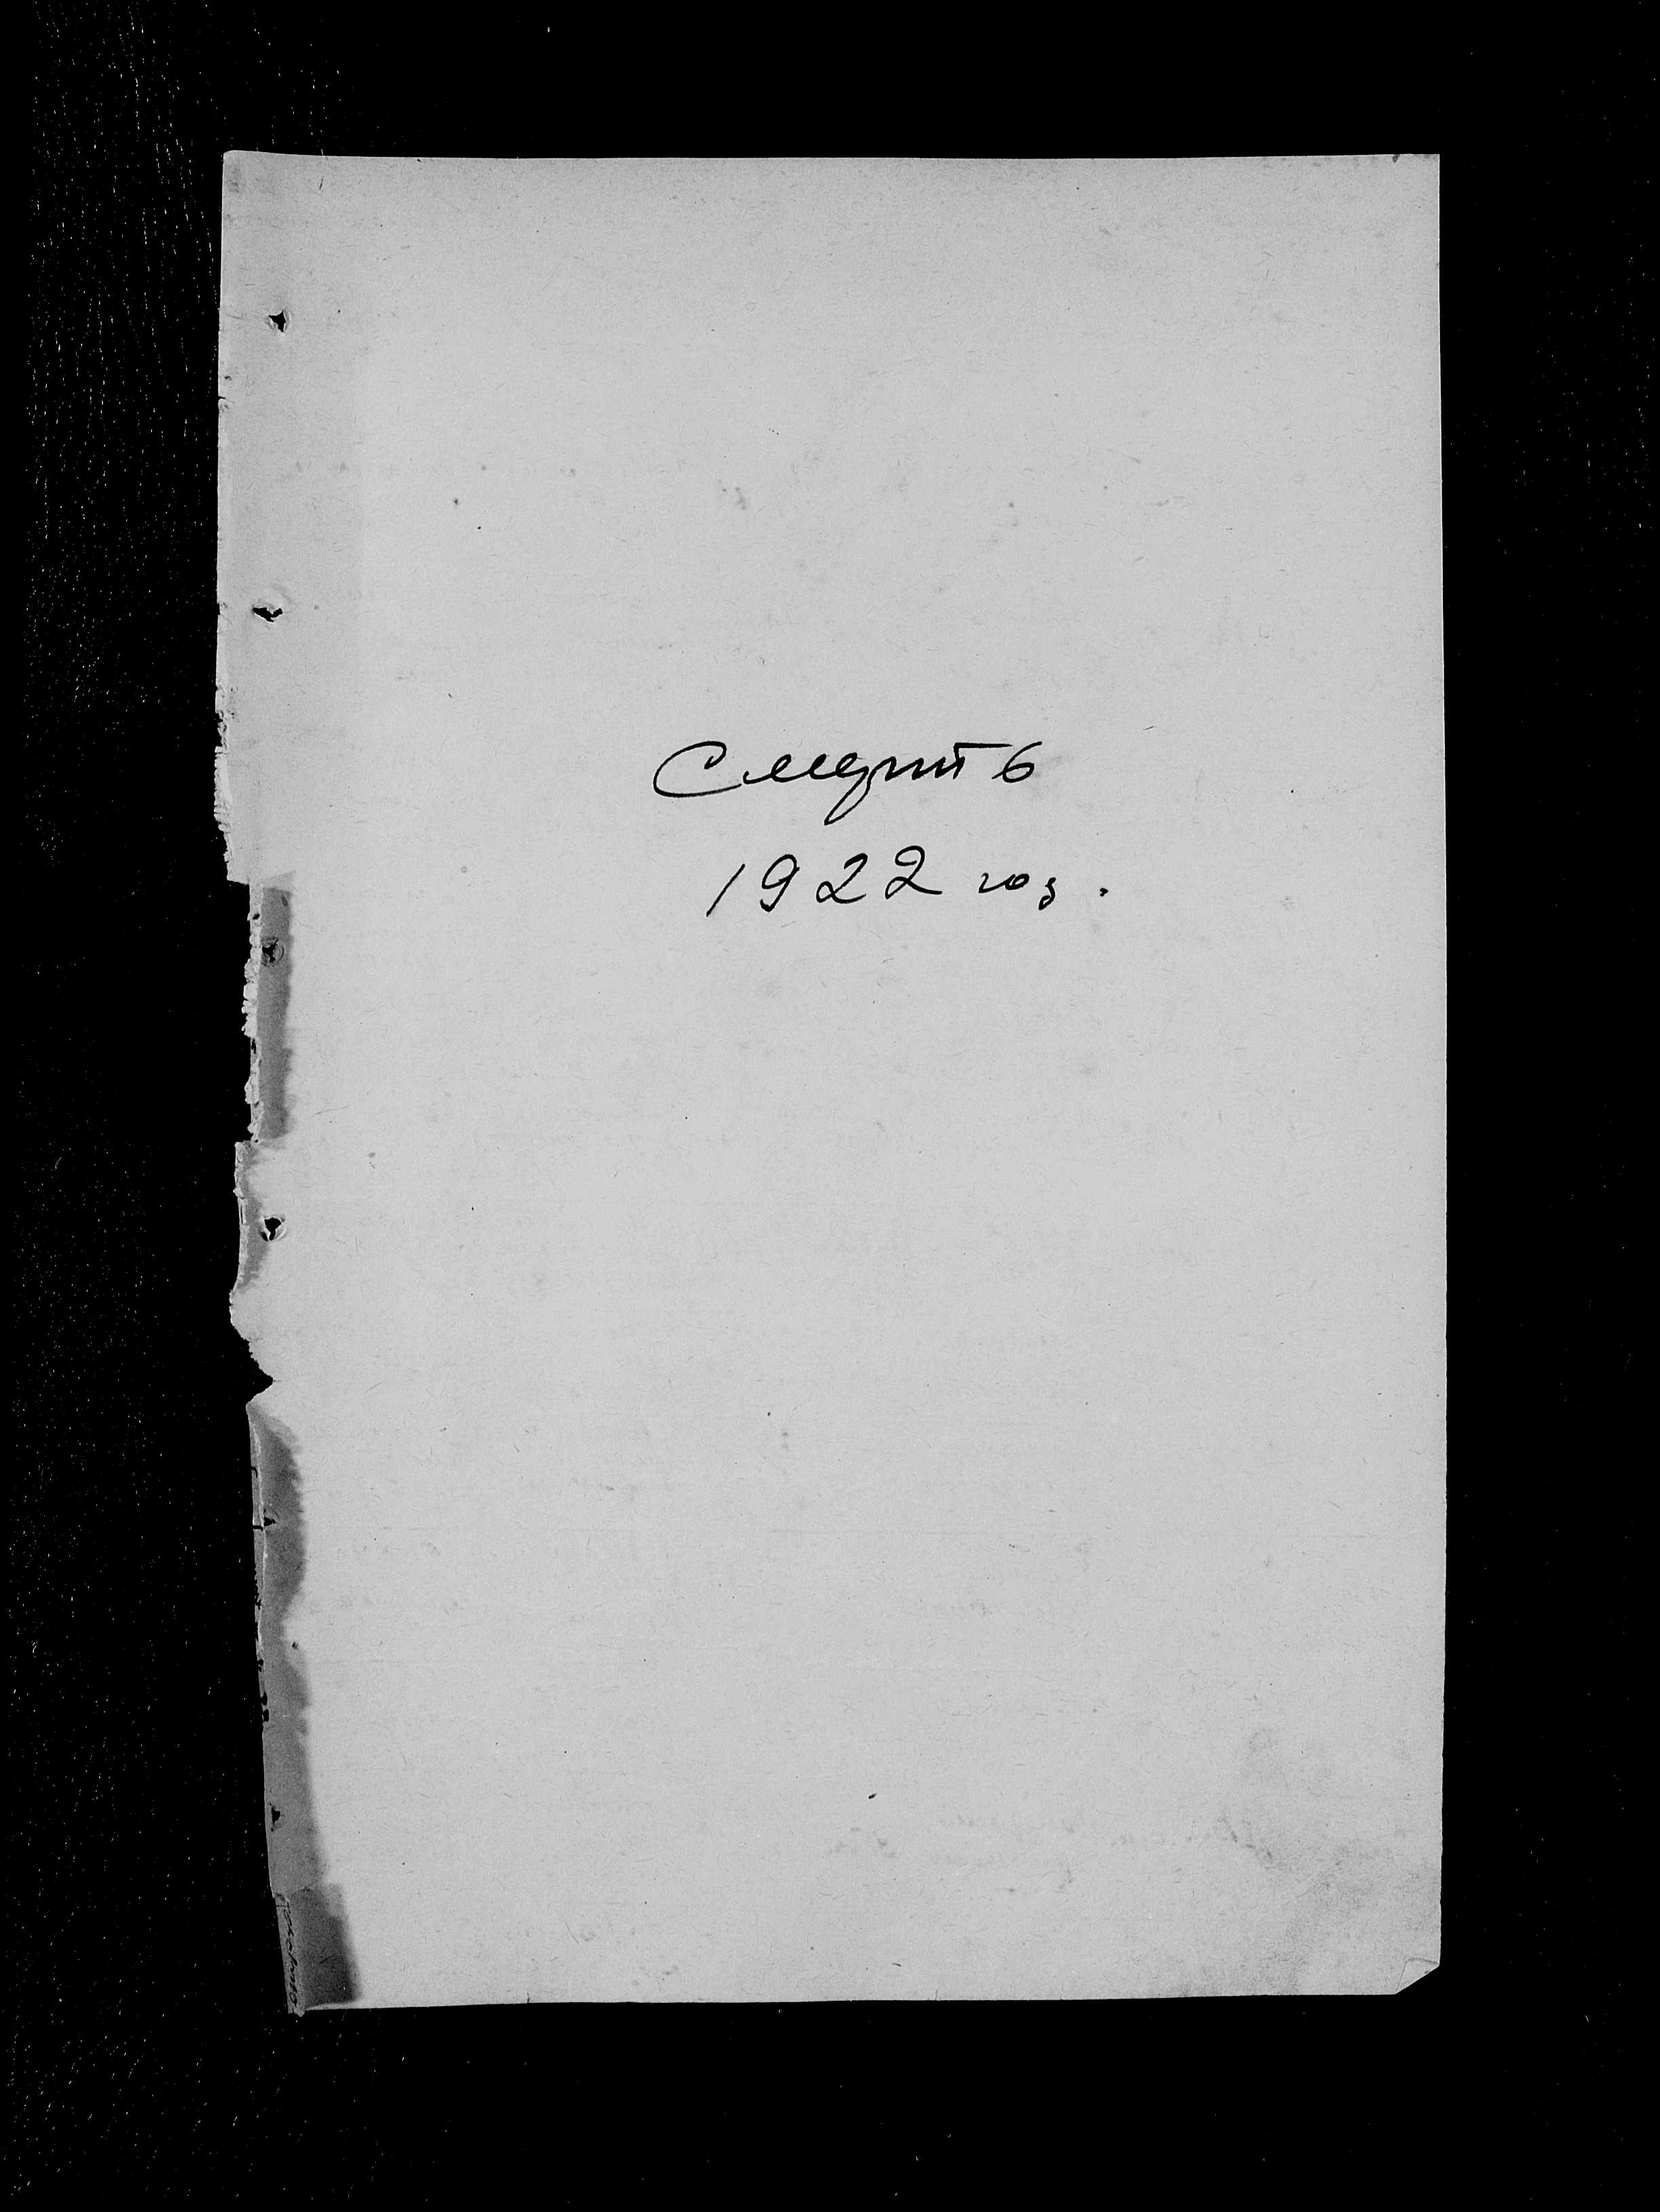 Смерть
1922 год.